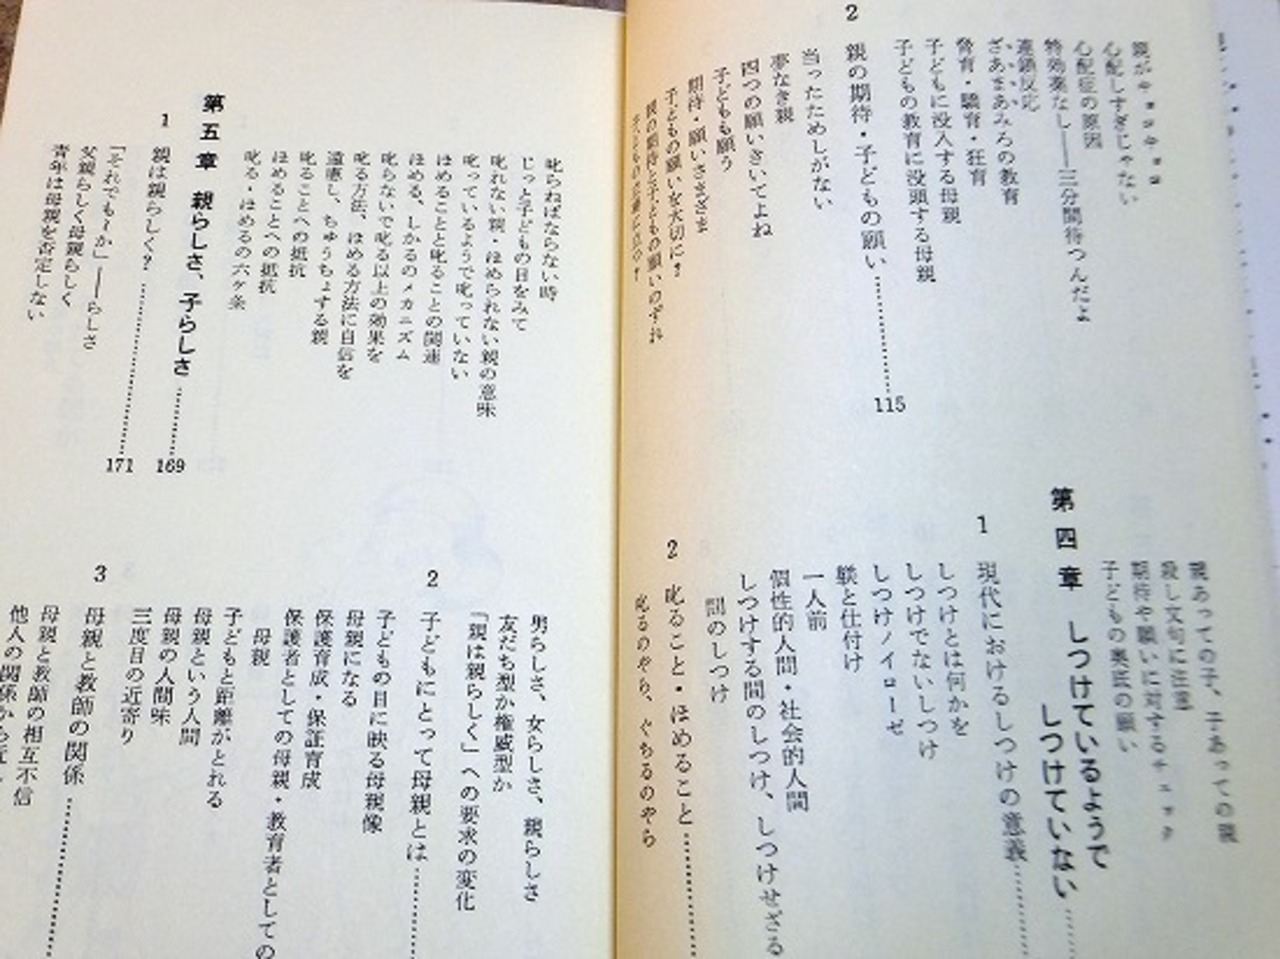 心配しすぎじゃない
心配症の原因
特効薬なし――三分間待つんだよ
連鎖反応
ざあまあみろの教育
脅育・驕育・狂育
子どもに没入する母親
子どもの教育に没頭する母親
2 親の期待・子どもの願い……115
当ったためしがない
夢なき親
四つの願いきいてよね
子どもも願う
期待・願いさまざま
子どもの願いを大切に?
親の期待と子どもの願いのずれ
親あっての子、子あっての親
殺し文句に注意
期待や願いに対するチェック
子どもの奥底の願い
第四章 しつけているようで
しつけていない……
1 現代におけるしつけの意義……
しつけとは何かを
しつけでないしつけ
しつけノイローゼ
躾と仕付け
一人前
個性的人間・社会的人間
しつけする間のしつけ、しつけせざる
間のしつけ
2 叱ること・ほめること……
叱るのやら、ぐちるのやら
叱らねばならない時
じっと子どもの目をみて
叱れない親・ほめられない親の意味
叱っているようで叱っていない
ほめることと叱ることの関連
ほめる、しかるのメカニズム
叱らないで叱る以上の効果を
叱る方法、ほめる方法に自信を
遠慮し、ちゅうちょする親
叱ることへの抵抗
ほめることへの抵抗
叱る・ほめるの六ヶ条
第五章 親らしさ、子らしさ……169
1 親は親らしく?……171
「それでも〜か」――らしさ
父親らしく母親らしく
青年は母親を否定しない
男らしさ、女らしさ、親らしさ
友だち型か権威型か
「親は親らしく」への要求の変化
2 子どもにとって母親とは……
子どもの目に映る母親像
母親になる
保護育成・保証育成
保護者としての母親・教育者としての
母親
子どもと距離がとれる
母親という人間
母親の人間味
三度目の近寄り
3 母親と教師の関係……
母親と教師の相互不信
他人の関係から近し